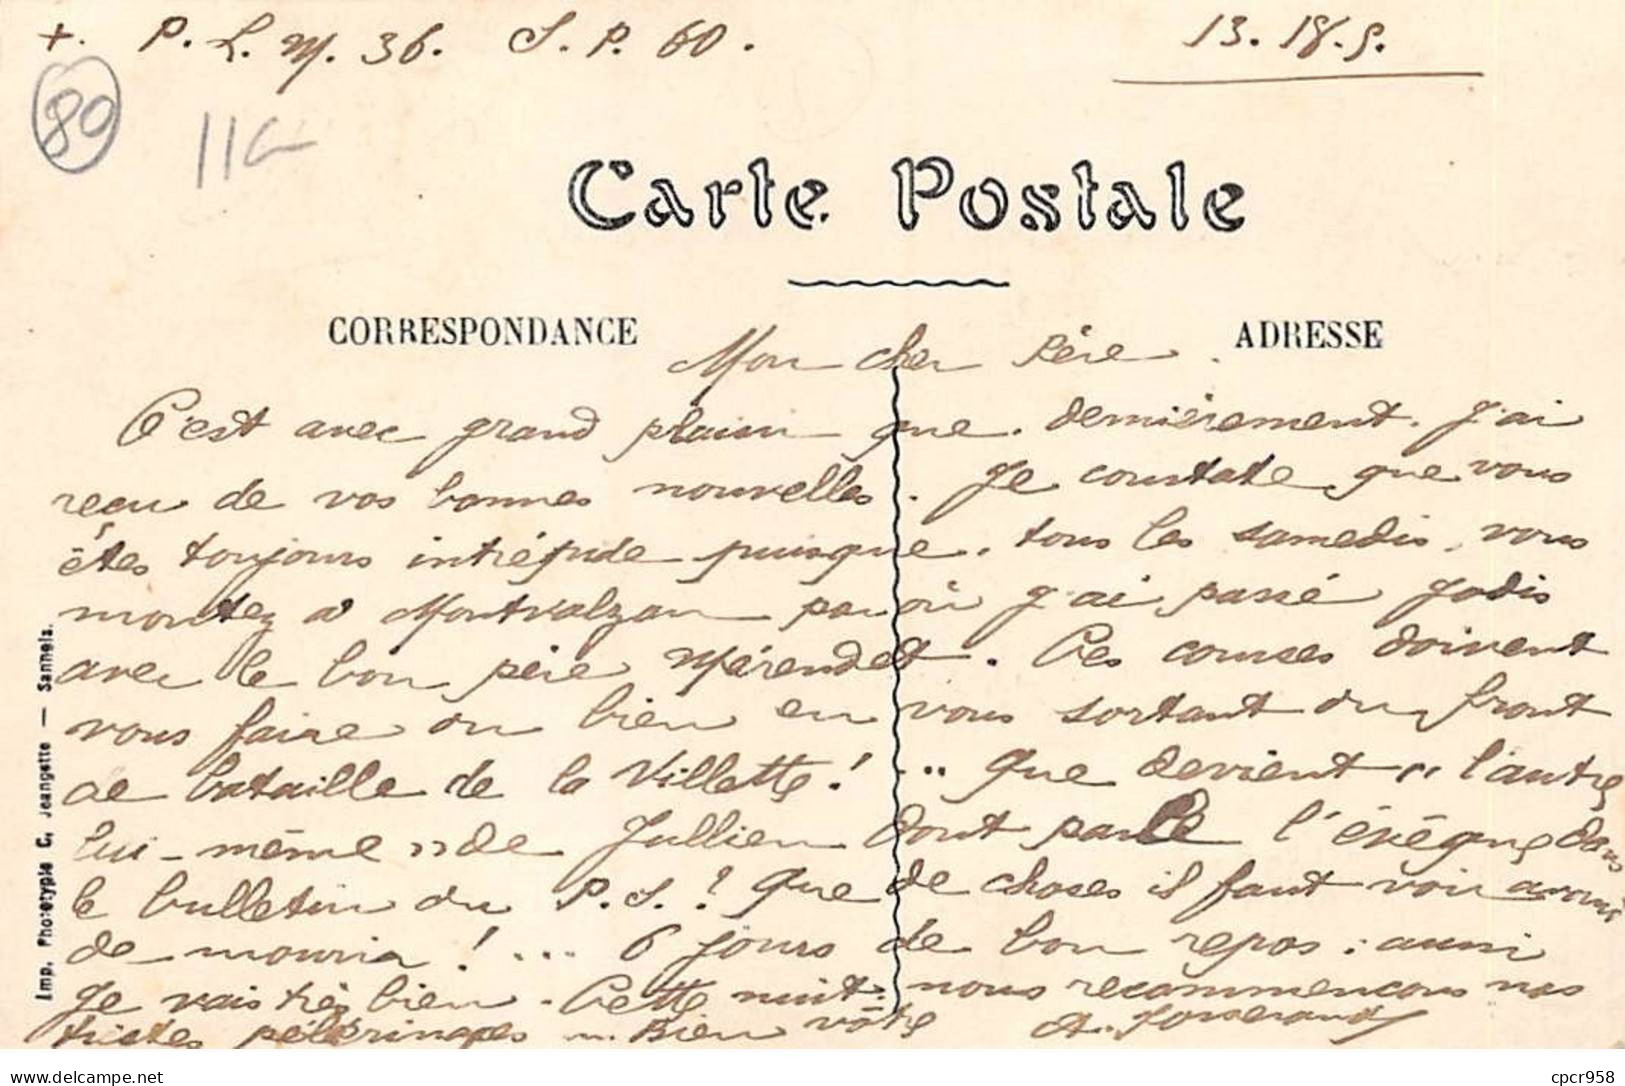 +. P. L. M. 36. S. P. 60. 13. 18. 5.
80
11G
Carte Postale
CORRESPONDANCE
ADRESSE
Mon cher Père.
C'est avec grand plaisir que dernièrement j'ai
reçu de vos bonnes nouvelles. Je constate que vous
êtes toujours intrépide puisque, tous les samedis, vous
montez à Montvalzan par où j'ai passé jadis
avec le bon père Mérendet. Ces courses doivent
vous faire du bien en vous sortant du front
de bataille de la Villette!... Que devient "l'autre
lui-même" de Jullien dont parle l'évêque dans
le bulletin du P.S.? Que de choses il faut voir avant
de mourir!... 6 jours de bon repos: aussi
je vais très bien. Cette nuit nous recommençons nos
tristes pélerinages... Bien vôtre A. Josserand
Imp. Phototypie C. Jeangette — Sannois.
delcampe.net
cpcr958